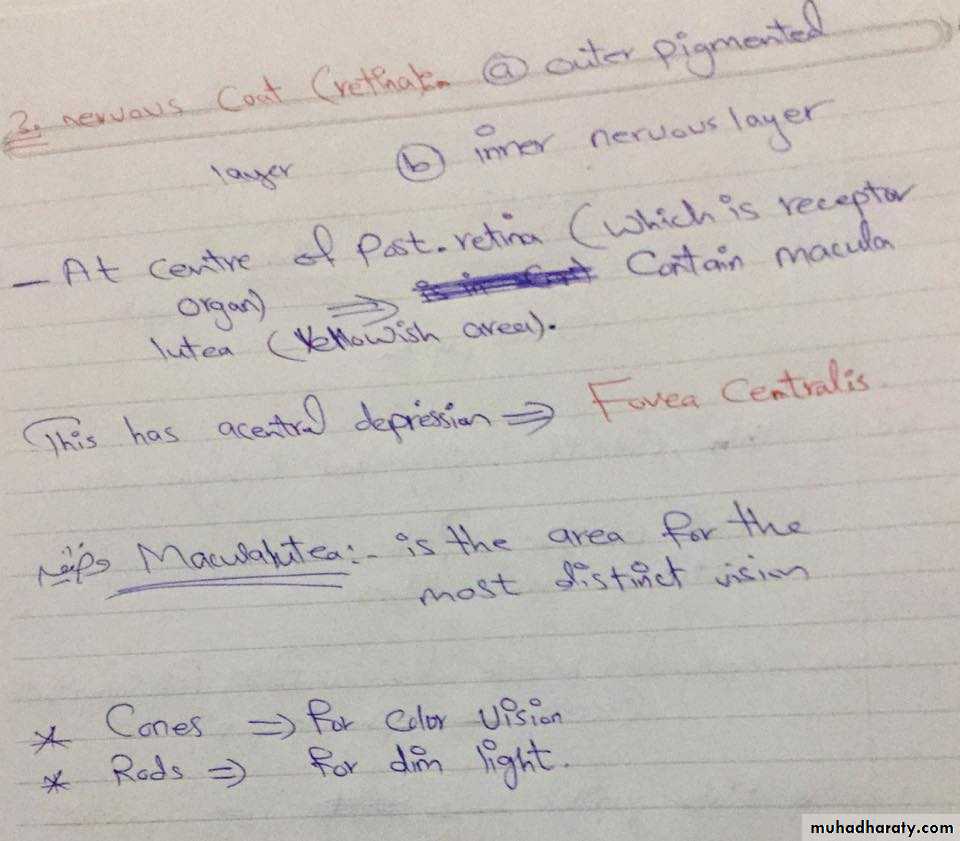 3. nervous Coat (retina). ⓐ outer pigmented
layer ⓑ inner nervous layer
- At centre of Post. retina (which is receptor
organ) ⇒ Contain macula
lutea (Yellowish area).
This has a central depression ⇒ Fovea Centralis
Macula lutea:- is the area for the
most distinct vision
* Cones ⇒ for color vision
* Rods ⇒ for dim light.
muhadharaty.com